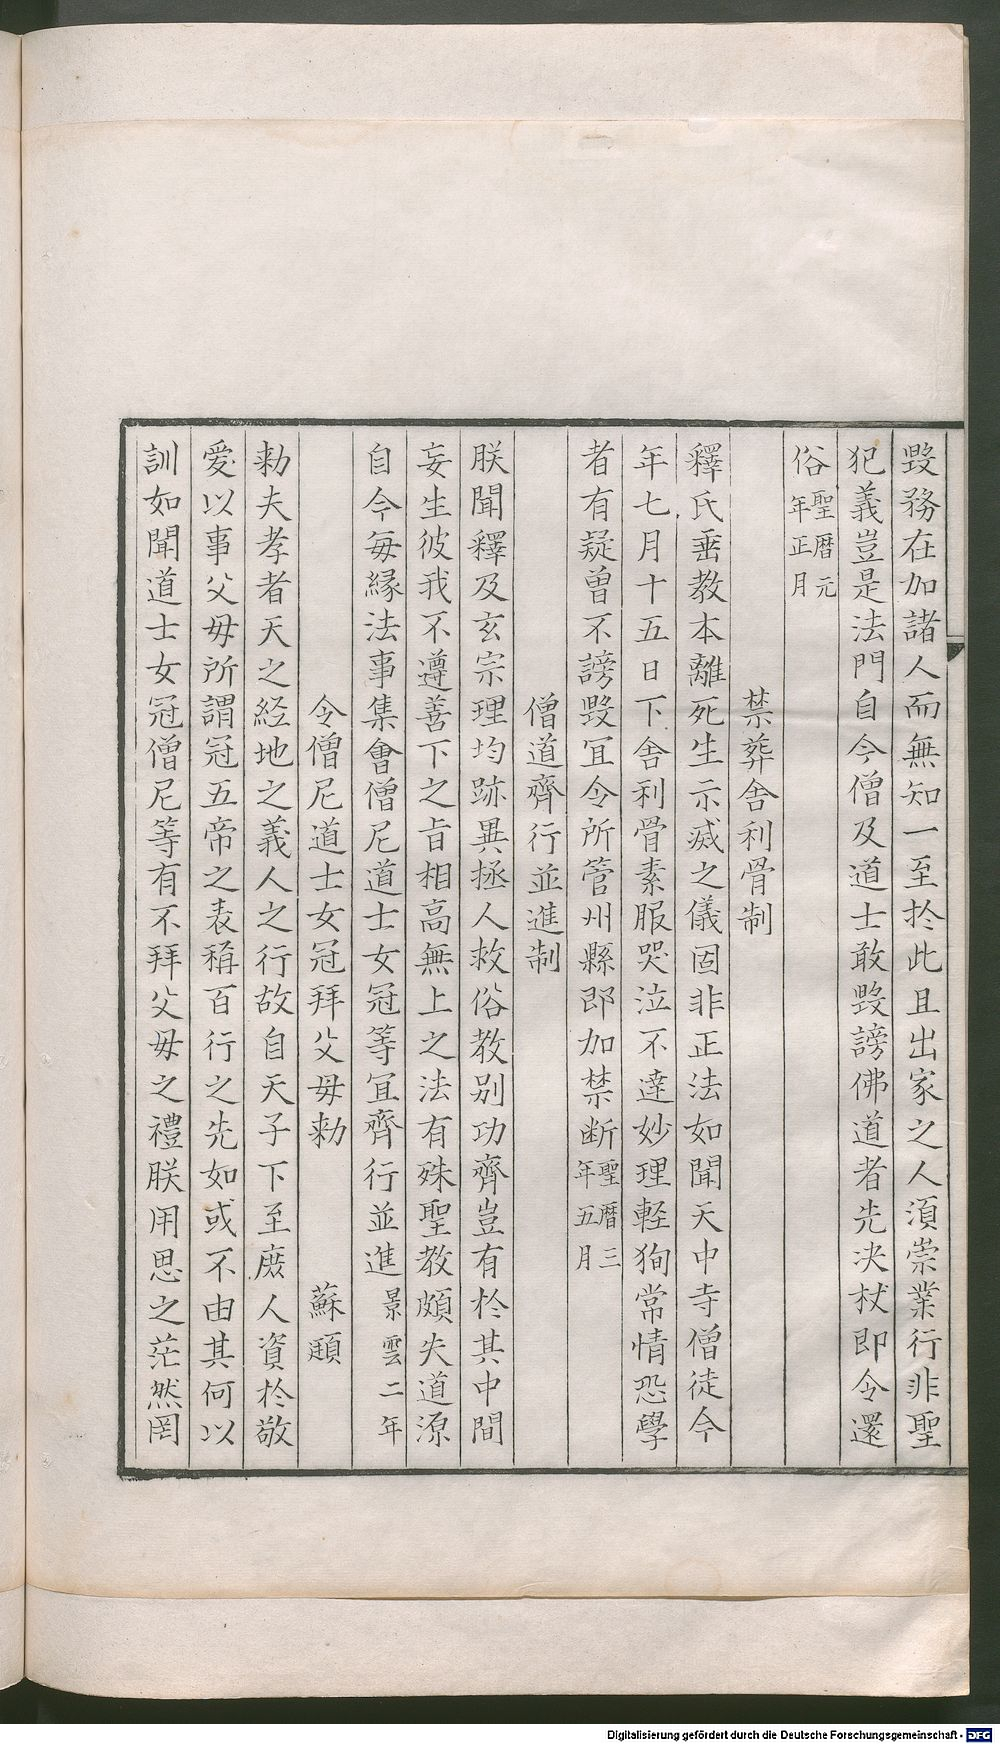 毀務在加諸人而無知一至於此且出家之人須崇業行非聖
犯義豈是法門自今僧及道士敢毀謗佛道者先決杖即令還
俗聖曆元年正月
禁葬舍利骨制
釋氏垂教本離死生示滅之儀固非正法如聞天中寺僧徒今
年七月十五日下舍利骨素服哭泣不達妙理輕狥常情恐學
者有疑曾不謗毀冝令所管州縣即加禁断聖曆三年五月
僧道齊行並進制
朕聞釋及玄宗理均跡異拯人救俗教別功齊豈有於其中間
妄生彼我不遵善下之旨相高無上之法有殊聖教頗失道源
自今每緣法事集會僧尼道士女冠等冝齊行並進景雲二年
令僧尼道士女冠拜父母勅 蘇頲
勅夫孝者天之経地之義人之行故自天子下至庶人資於敬
愛以事父母所謂冠五帝之表稱百行之先如或不由其何以
訓如聞道士女冠僧尼等有不拜父母之禮朕用思之茫然罔
Digitalisierung gefördert durch die Deutsche Forschungsgemeinschaft - DFG